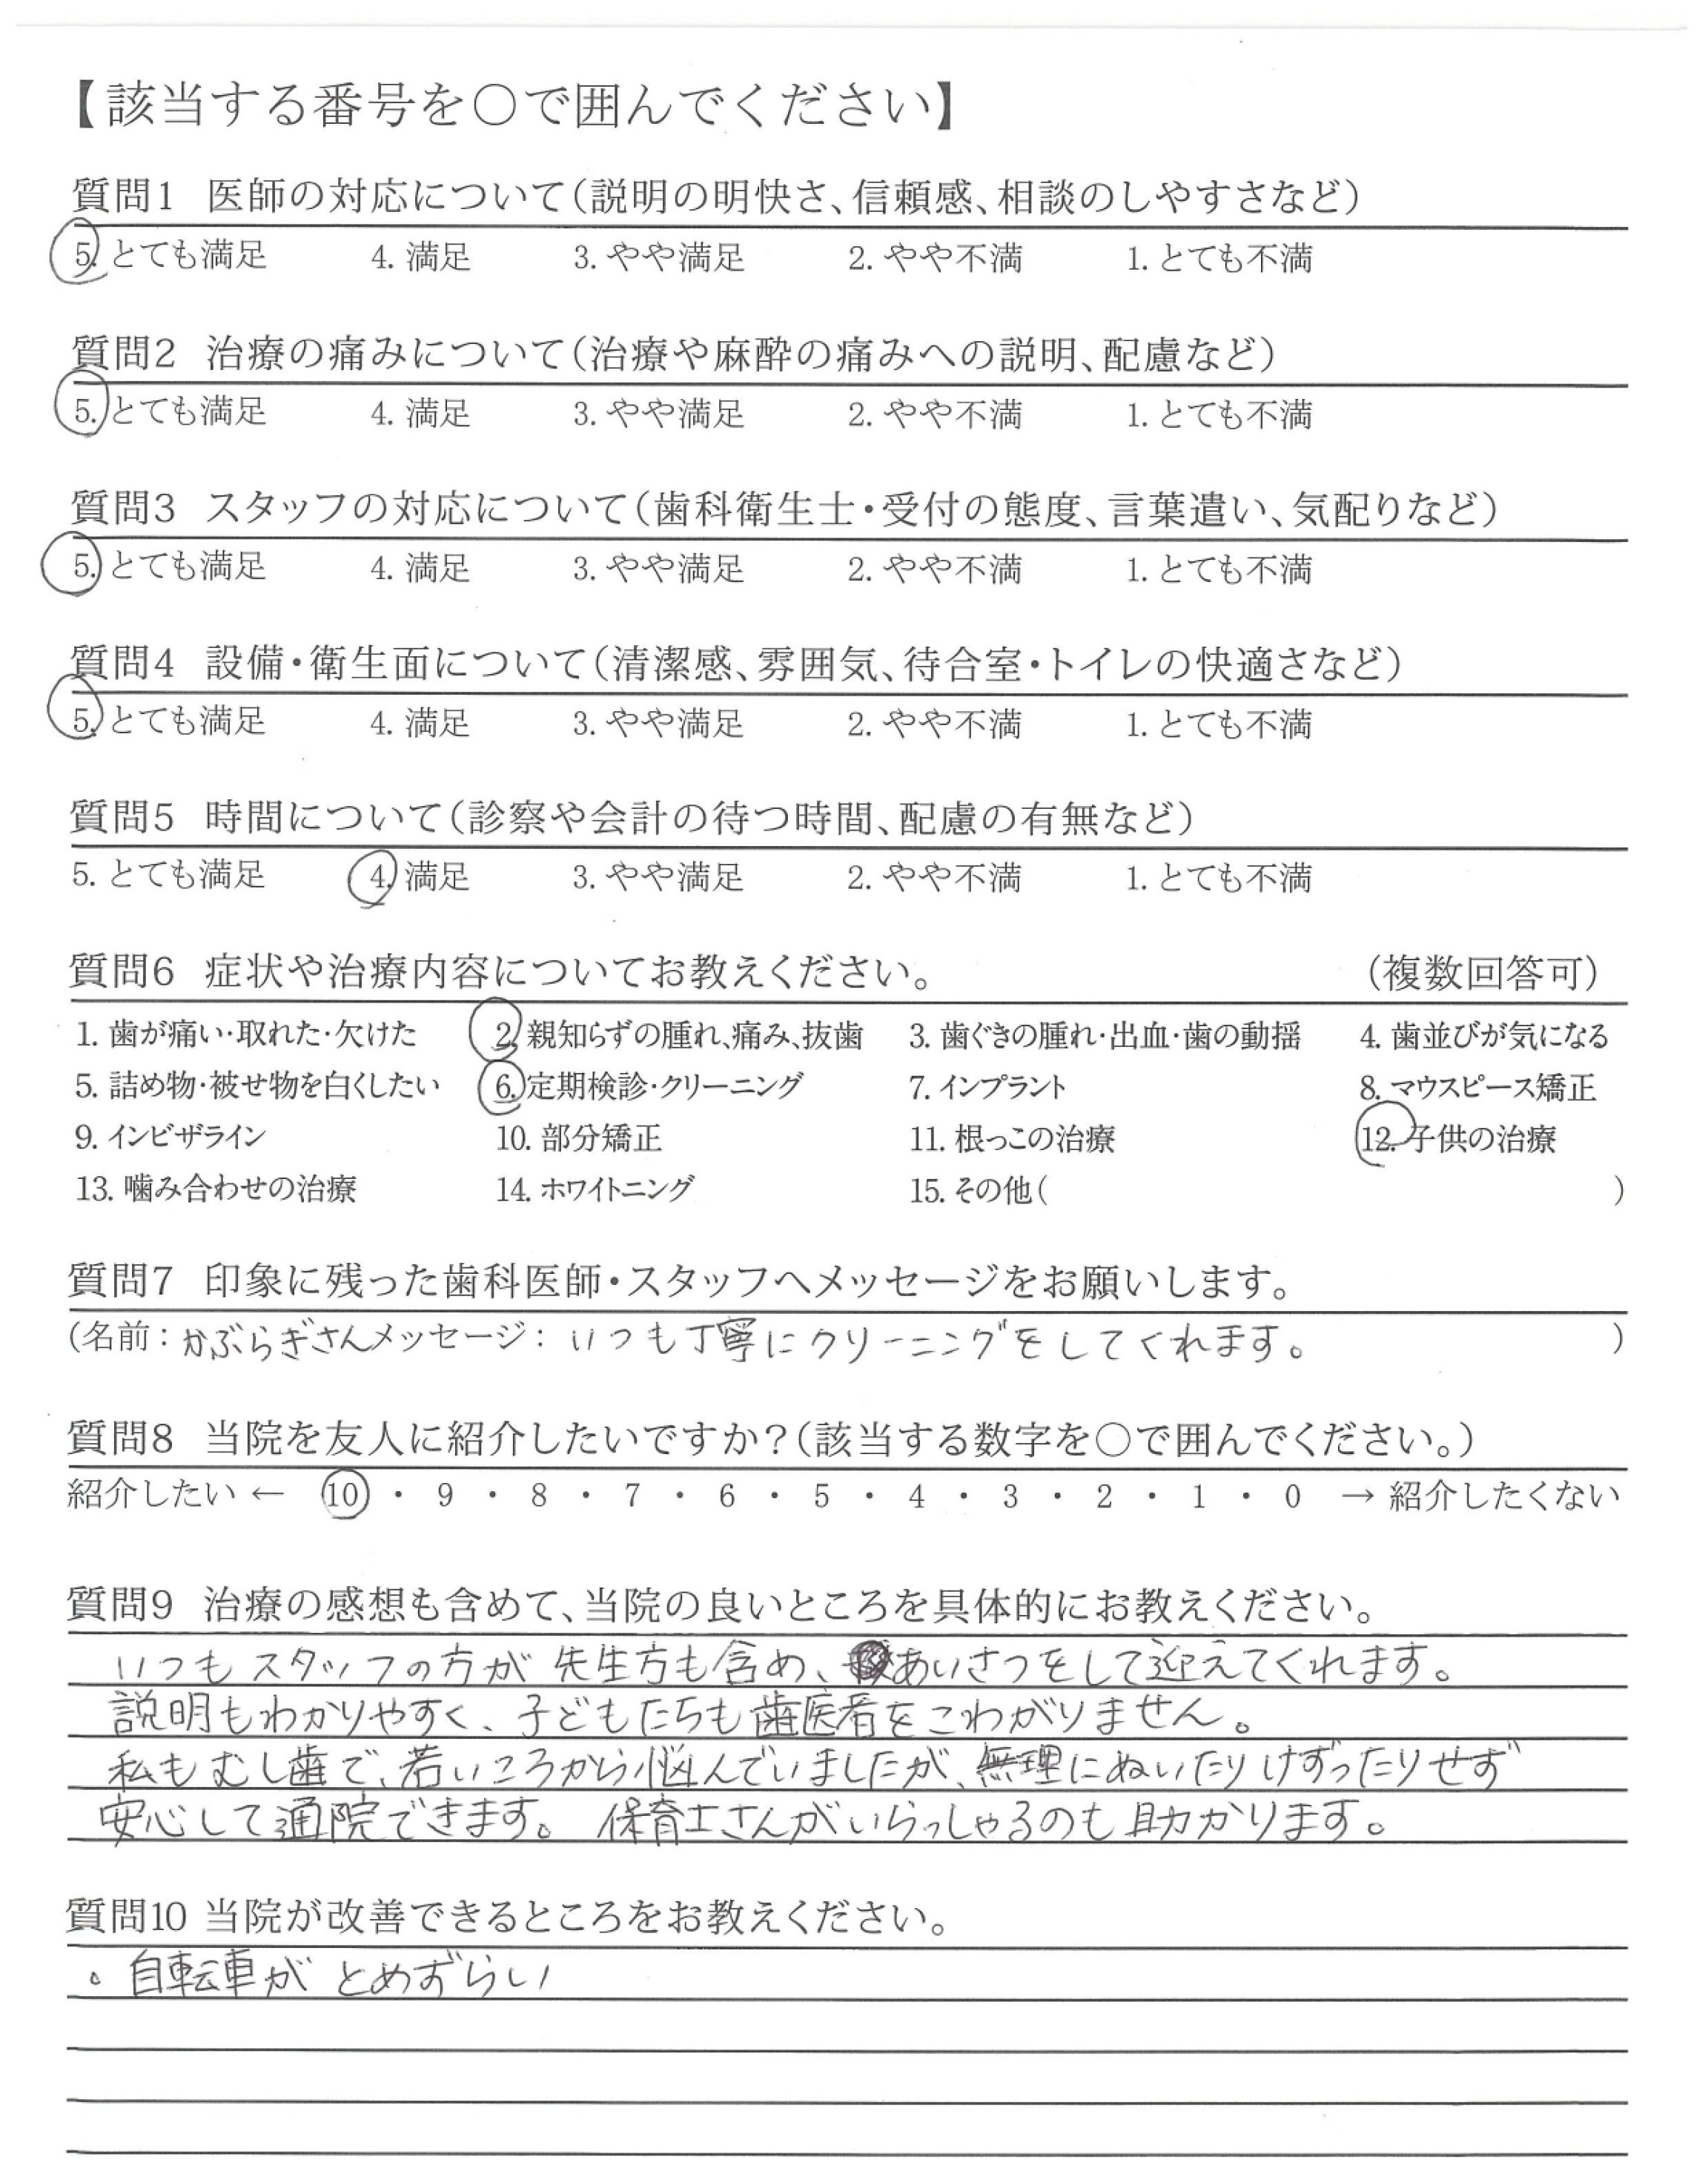 【該当する番号を〇で囲んでください】
質問1 医師の対応について(説明の明快さ、信頼感、相談のしやすさなど)
5. とても満足 4. 満足 3. やや満足 2. やや不満 1. とても不満
質問2 治療の痛みについて(治療や麻酔の痛みへの説明、配慮など)
5. とても満足 4. 満足 3. やや満足 2. やや不満 1. とても不満
質問3 スタッフの対応について(歯科衛生士・受付の態度、言葉遣い、気配りなど)
5. とても満足 4. 満足 3. やや満足 2. やや不満 1. とても不満
質問4 設備・衛生面について(清潔感、雰囲気、待合室・トイレの快適さなど)
5. とても満足 4. 満足 3. やや満足 2. やや不満 1. とても不満
質問5 時間について(診察や会計の待つ時間、配慮の有無など)
5. とても満足 4. 満足 3. やや満足 2. やや不満 1. とても不満
質問6 症状や治療内容についてお教えください。 (複数回答可)
1. 歯が痛い・取れた・欠けた 2. 親知らずの腫れ、痛み、抜歯 3. 歯ぐきの腫れ・出血・歯の動揺 4. 歯並びが気になる
5. 詰め物・被せ物を白くしたい 6. 定期検診・クリーニング 7. インプラント 8. マウスピース矯正
9. インビザライン 10. 部分矯正 11. 根っこの治療 12. 子供の治療
13. 噛み合わせの治療 14. ホワイトニング 15. その他( )
質問7 印象に残った歯科医師・スタッフへメッセージをお願いします。
(名前：かぶらぎさんメッセージ：いつも丁寧にクリーニングをしてくれます。 )
質問8 当院を友人に紹介したいですか？(該当する数字を〇で囲んでください。)
紹介したい ← 10 ・ 9 ・ 8 ・ 7 ・ 6 ・ 5 ・ 4 ・ 3 ・ 2 ・ 1 ・ 0 → 紹介したくない
質問9 治療の感想も含めて、当院の良いところを具体的にお教えください。
いつもスタッフの方が先生方も含め、あいさつをして迎えてくれます。
説明もわかりやすく、子どもたちも歯医者をこわがりません。
私もむし歯で、若いころから悩んでいましたが、無理にぬいたりけずったりせず
安心して通院できます。保育士さんがいらっしゃるのも助かります。
質問10 当院が改善できるところをお教えください。
。自転車がとめずらい